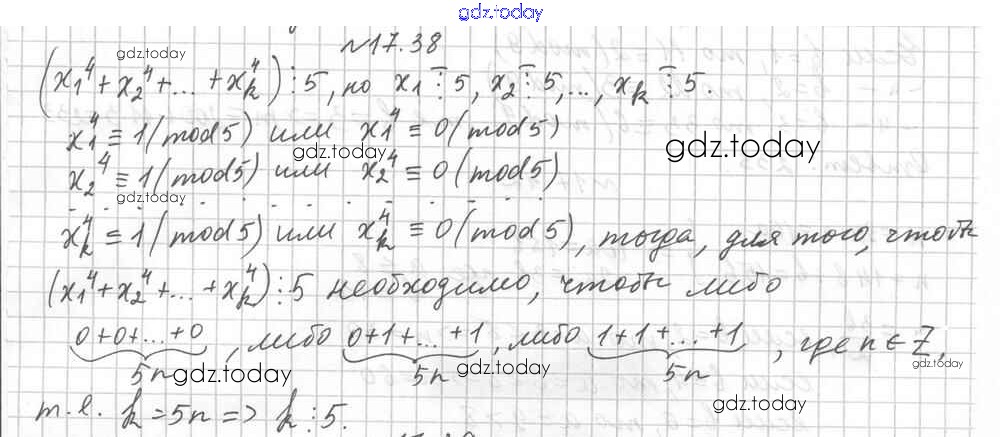 gdz.today
№17.38
gdz.today
(x₁⁴ + x₂⁴ + ... + x_k⁴) ⋮ 5, но x₁ ⋮̅ 5, x₂ ⋮̅ 5, ..., x_k ⋮̅ 5.
x₁⁴ ≡ 1 (mod 5) или x₁⁴ ≡ 0 (mod 5)
gdz.today
gdz.today
x₂⁴ ≡ 1 (mod 5) или x₂⁴ ≡ 0 (mod 5)
gdz.today
x_k⁴ ≡ 1 (mod 5) или x_k⁴ ≡ 0 (mod 5), тогда, для того, чтобы
(x₁⁴ + x₂⁴ + ... + x_k⁴) ⋮ 5 необходимо, чтобы либо
0+0+...+0, либо 0+1+...+1, либо 1+1+...+1, где n ∈ Z,
5n 5n 5n
gdz.today
gdz.today
gdz.today
т.е. k = 5n => k ⋮ 5.
gdz.today